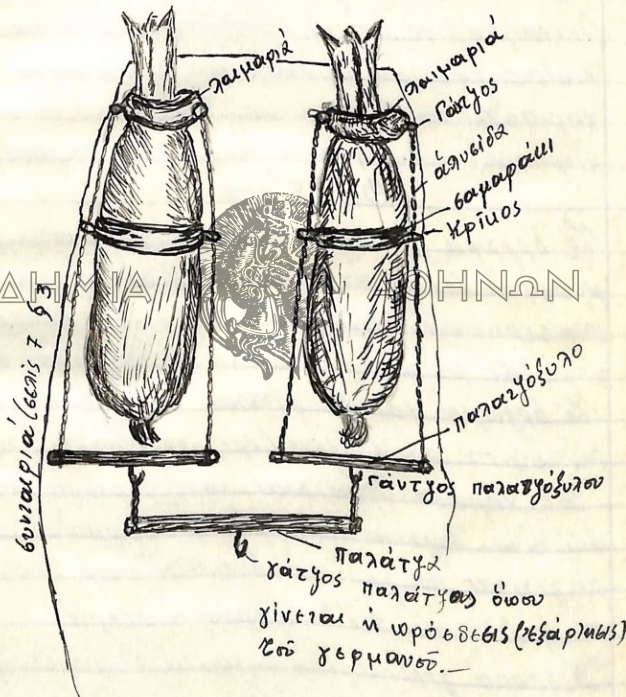 λαιμαριά
λαιμαριά
γάντζος
ἁλυσίδα
σαμαράκι
κρίκος
ΔΗΜΙΑ ΑΘΗΝΩΝ
συνταιριά (σελὶς 7 § 3)
παλατζόξυλο
γάντζος παλατζόξυλου
παλάτζα
γάτζος παλάτζας ὅπου
γίνεται ἡ πρόσδεσις (ἐξάρτησις)
τοῦ γερμανοῦ.—